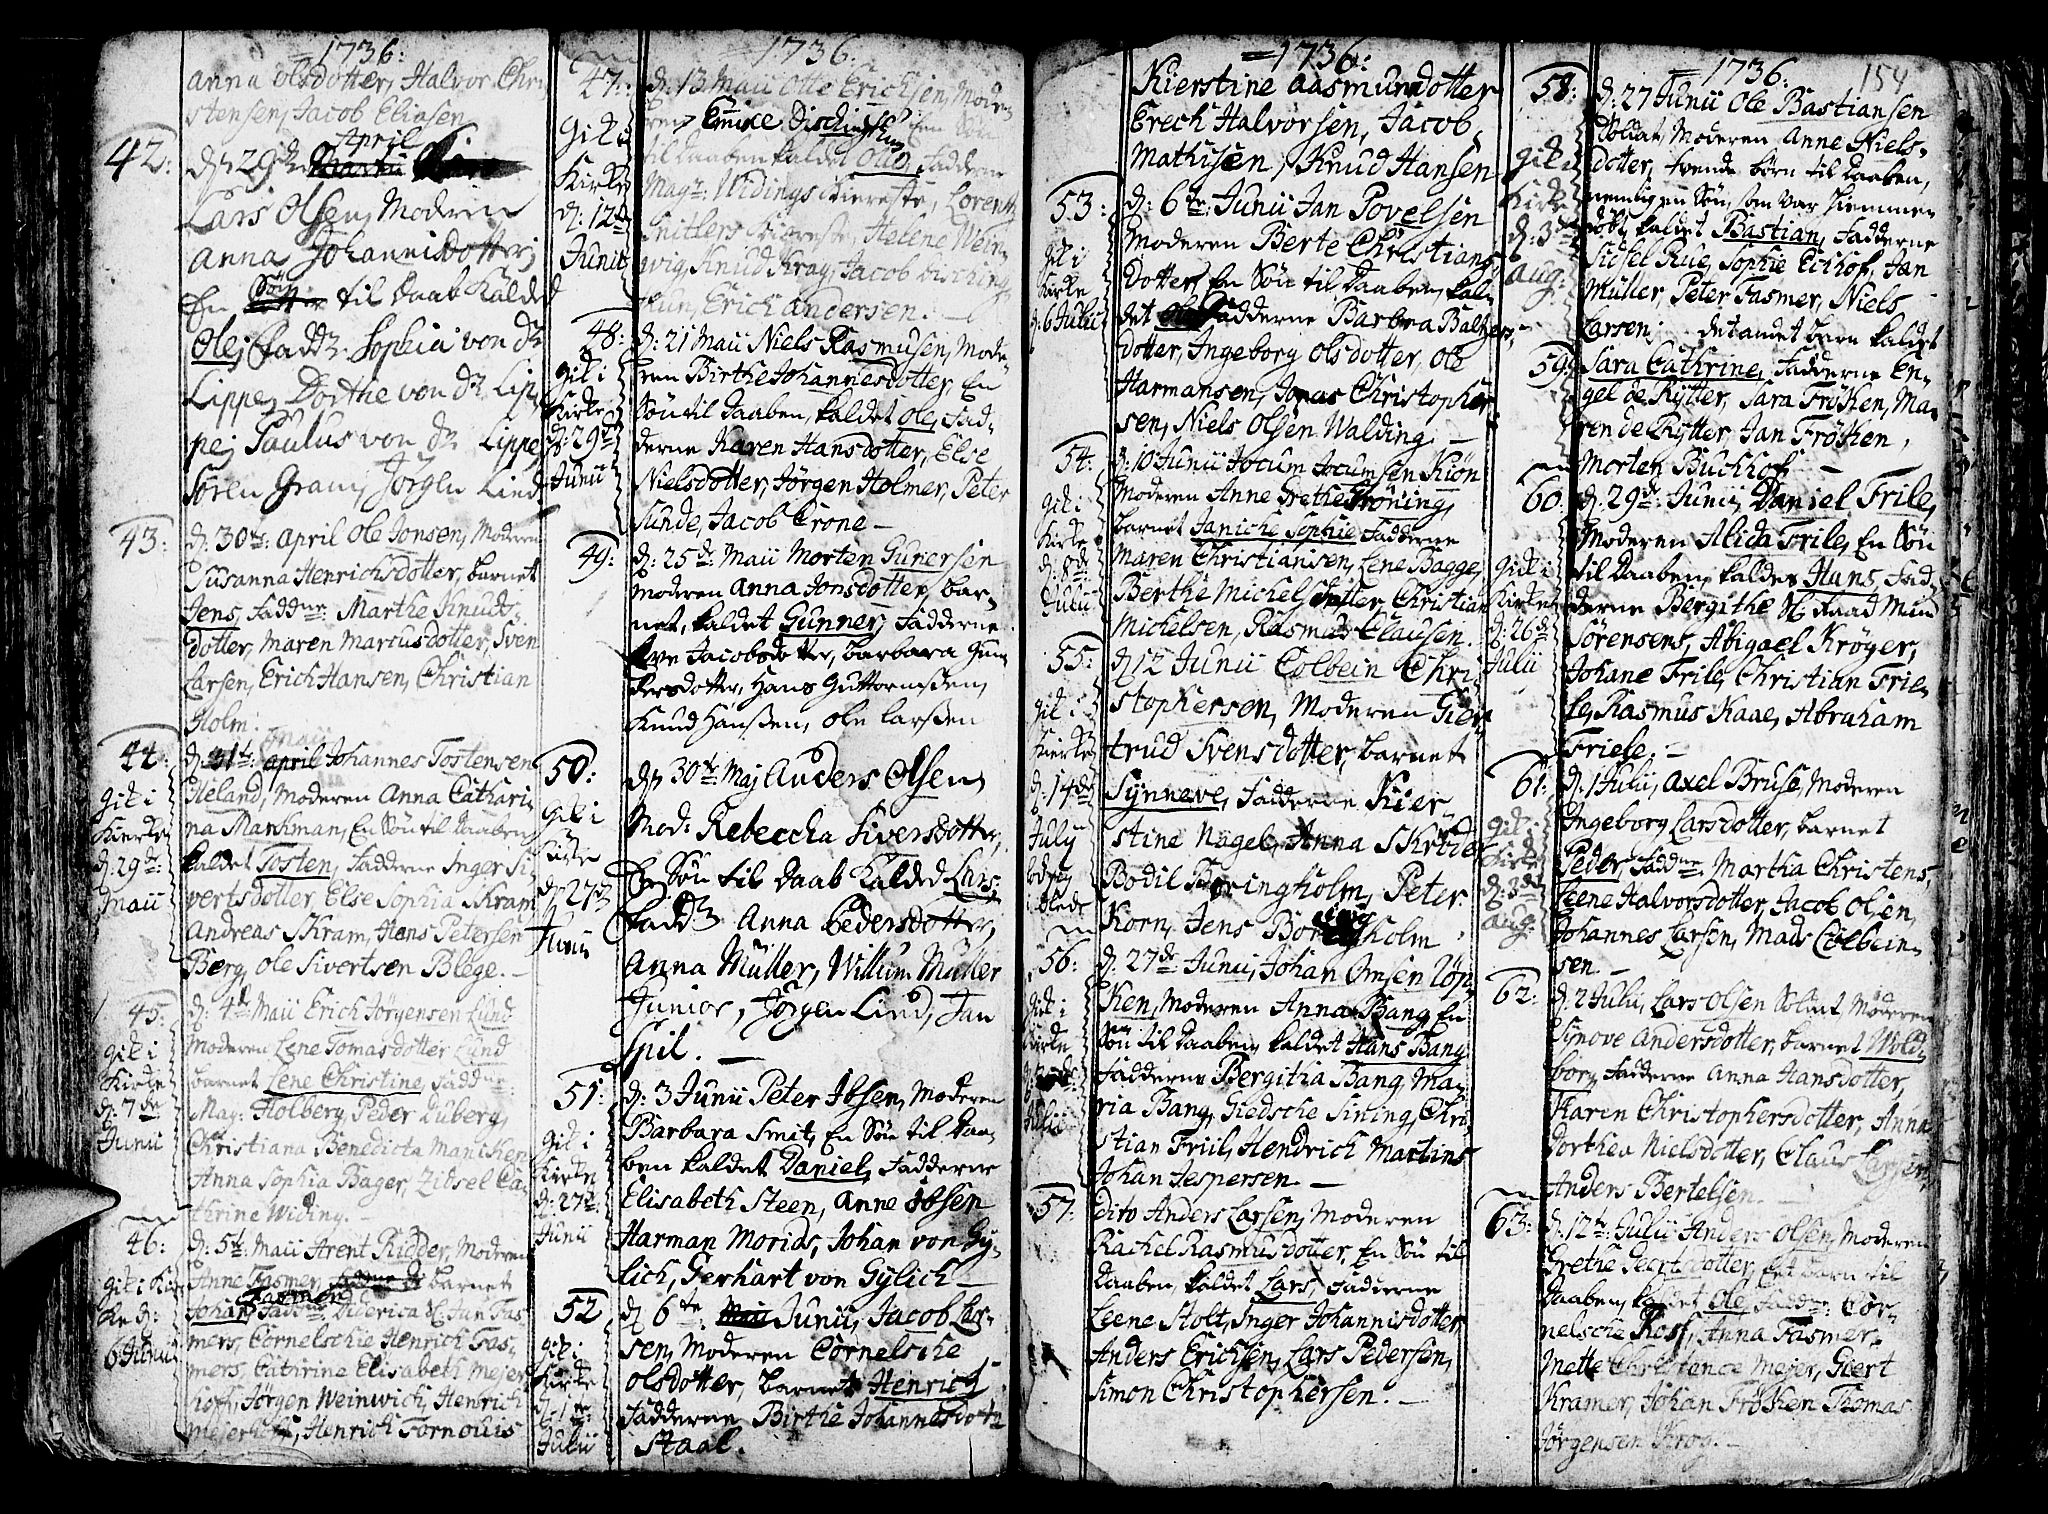 =1736:
Anna Olsdotter, Halvor Chri
stensen, Jacob Eliasen
42: d: 29de April
Lars Olsen, Moderen
Anna Johannisdotter,
En Søn til Daab Kalde
Ole, Fadd: Sophia von dr
Lippe, Dorthe von dr Lip
pe, Paulus von dr Lippe,
Sören Gram, Jörgen Lind
43: d: 30te: April Ole Jonsen, Moderen
Susanna Henrichsdotter, barnet
Jens, Faddne: Marthe Knuds
dotter, Maren Marcusdotter, Sven
Larsen, Erich Hansen, Christian
Holm.
44: d: 1te: Maii Johannes Tostensen
Heland, Moderen Anna Cathari
na Markman, En Søn til Daaben
kaldet Tosten, Fadderne Inger Si
vertsdotter, Else Sophia Skram
Andreas Skram, Hans Petersen
Berg, Ole Sivertsen Blege. –
Gik i
Kierke
d: 29de:
Maii
45: d: 4de Maii Erich Jörgensen Lund
Moderen Lene Tomasdotter Lund
barnet Lene Christine, Faddne:
Mag: Holberg, Peder Duberg,
Christiana Benedicta Mantken
Anna Sophia Bager, Zidsel Ca
thrine Widing. –
Gik i
Kirke
d: 7de
Junii
46: d: 5te: Maii Arent Ridder, Moderen
Anne Fasmer, barnet
Johan Fasmer, Faddne: Diderica Sl. Jan Fas
mers, Cornelschie Henrich Fas
mers, Catrine Elisabeth Mejer
hoff, Jörgen Weinwich, Henrich
Mejerhoff, Henrich Fornouis
Gik i Kir
ke d:
6 Junii
=1736.
47: d: 13 Maii Otte Erichsen, Mode
ren, Ennike Disching, En Søn
til Daaben kaldet Otto, Fadderne
Magr: Widings Kiereste, Lorentz
Snitlers Kiereste, Helene Wein
wig, Knud Krag, Jacob
Erich Andersen. –
Gik i
Kirke
d: 12te
Junii
48: d: 21 Maii Niels Rasmusen, Mode
ren Birthe Johannesdotter, En
Søn til Daaben, kaldet Ole, Fad
derne Karen Hansdotter, Else
Nielsdotter, Jörgen Holmer, Peter
Sunde, Jacob Crone –
Gik i
Kirke
d: 29de
Junii
49: d: 25de: Maii Morten Gunersen
Moderen Anna Jonsdotter, bar
net, kaldet Gunner, Fadderne
Eve Jacobsdotter, Barbara Gun
nersdotter, Hans Guttormsen,
Knud Hanssen, Ole Larssen
50: d: 30te Maj Anders Olsen,
Mod: Rebeccha Siversdotter,
En Søn til Daab Kalded Lars,
Fadd: Anna Pedersdotter,
Anna Müller, Willum Müller
Junior, Jörgen Lind, Jan
Spil. –
Gik i
Kirke
d: 27de
Junii
51: d: 3 Junii Peter Ibsen, Moderen
Barbara Smit, En Søn til Daa
ben kaldet Daniel, Fadderne
Elisabeth Steen, Anne Ibsen
Harman Morids, Johan von Gy
lich, Gerhart von Gylich –
Gik i
Kirke
d: 27de
Junii
52 d: 6te Junii, Jacob Lar
sen, Moderen Cornelsche
Olsdotter, barnet Henrich
Fadderne Birthe Johannesdotr
Staal.
Gik i
Kirke
d: 1te:
Julii
=1736:
Kierstine Aasmundotter
Erech Halvorsen, Jacob
Mathisen, Knud Hansen
53: d: 6te: Junii Jan Povelsen
Moderen Berte Christians
dotter, En Søn til Daaben, kal
det Ole, Fadderne Barbra Baltzers
dotter, Ingeborg Olsdotter, Ole
Harmansen, Jonas Christopher
sen, Niels Olsen Walding –
Gik i
Kirke
d: 6 Julii
54: d: 10 Junii Jocum Jocumsen Kiön
Moderen Anne Grethe Fröning,
barnet Janiche Sophie Fadderne
Maren Christiansen, Lene Bagge,
Berthe Michelsdatter, Christian
Michelsen, Rasmus Clausen.
Gik i
Kirke
d: 8de:
Julii
55: d: 12 Junii Colbein Chri
stophersen, Moderen Gier
trud Svensdotter, barnet
Synneve, Fadderne Kier
stine Nagel, Anna Skröder
Bodil Boringholm, Peter
Korn, Jens Boringholm
Gik i
Kierke
d: 14de
July
56: d: 27de: Junii, Johan Omsen Löp
ken, Moderen Anna Bang, En
Søn til Daaben, kaldet Hans Bang
Fadderne Bergitha Bang, Ma
ria Bang, Giedsche Sining, Chri
stian Friil, Hendrich Martins
Johan Jespersen –
Gik i
Kirke
Julii
57: Dito Anders Larsen, Moderen
Rachel Rasmusdotter, En Søn til
Daaben, kaldet Lars, Fadderne
Leene Stolt, Inger Johannisdotter
Anders Erichsen, Lars Pedersen,
Simon Christophersen. –
=1736: 154
58: d: 27 Junii Ole Bastiansen
Soldat, Moderen Anne Niels
dotter, tvende børn til Daaben,
nemlig en Søn, som var hiemme
døbt, kaldet Bastian, Fadderne
Sidsel Rue, Sophie Eichof, Jan
Müller, Peter Fasmer, Niels
Larsen; det andet barn kaldet
59: Sara Cathrine, Fadderne En
gel de Rÿtter, Sara Fröken, Ma
ren de Rÿtter, Jan Fröken,
Morten Buchhof –
Gik i
Kirke
d: 3de
Aug:
60: d: 29de: Junii, Daniel Frile,
Moderen Alida Frile, En Søn
til Daaben, kaldet Hans, Fad
derne Bergithe Sl. Raadmund
Sörensens, Abigael Kröger,
Johane Frile, Christian Frie
le, Rasmus Kaae, Abraham
Friele. –
Gik i
Kirke
d: 26de
Julii
61: d: 1 Julii, Axel Bruse, Moderen
Ingeborg Larsdotter, barnet
Peder, Faddne: Martha Christens,
Leene Halvorsdotter, Jacob Olsen,
Johannes Larsen, Mads Colbein
sen –
Gik i
Kirke
d: 3de
Aug:
62: d: 2 Julii, Lars Olsen Soldat Moderen
Synove Andersdotter, barnet Wold
borg, Fadderne Anna Hansdotter,
Karen Christophersdotter, Anna
Dorthea Nielsdotter, Claus Larsen,
Anders Bertelsen. –
63: d: 12te: Julii Anders Olsen, Moderen
Grethe Geertsdotter, Et barn til
Daaben, kaldet Ole, Faddne: Cor
nelsche Rosf, Anna Fasmer
Mette Christence Mejer, Giert
Kramer, Johan Fröken Thomas
Jörgensen Krog. –